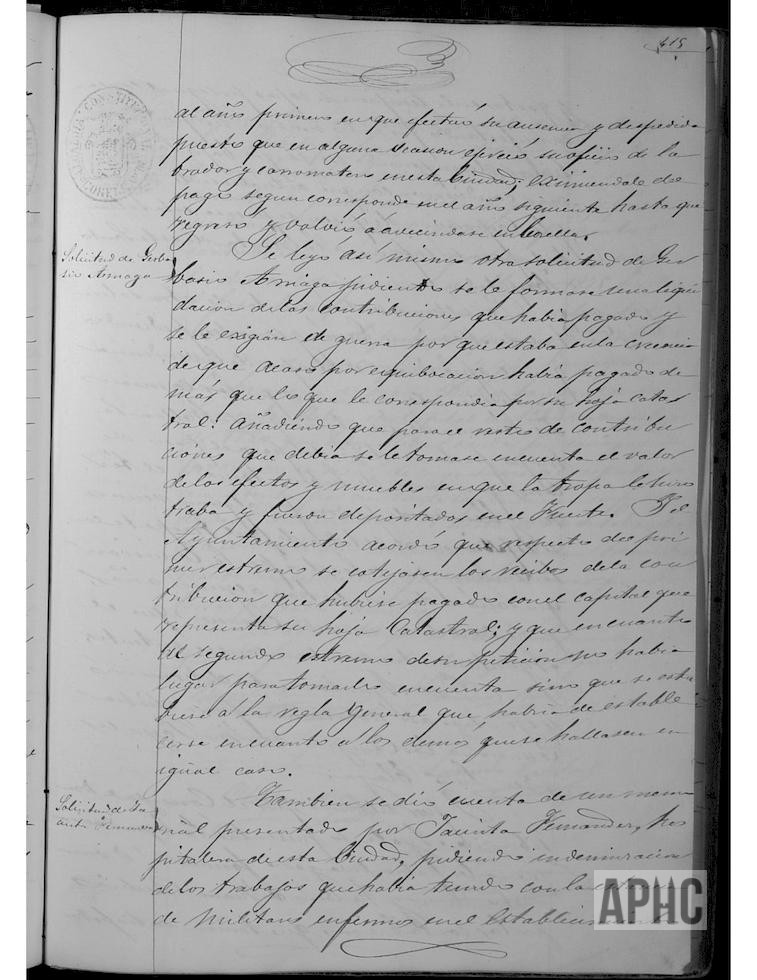 415
al año primero en que efectuó su ausencia y despedida
puesto que en alguna ocasion ejerció su oficio de la
brador y carromatero en esta Ciudad; eximiendole de
pago segun corresponde en el año siguiente hasta que
regresó y volvió á avecindarse en ella.
Solicitud de Gerba
sio Arriaga
Se leyó asi mismo otra solicitud de Ger
basio Arriaga pidiendo se le formase una liqui
dacion de las contribuciones que habia pagado y
se le exigían de guerra por que estaba en la creencia
de que acaso por equibocacion habia pagado de
más que lo que le correspondia por su hoja catas
tral: añadiendo que para el resto de contribu
ciónes que debia se le tomase en cuenta el valor
de los efectos y muebles en que la tropa le
traba y fueron depositados en el Fuerte. Y el
Ayuntamiento acordó que respecto de pri
mer estremo se cotejasen los recibos de la con
tribucion que hubiese pagado con el capital que
representa su hoja Catastral; y que en cuanto
al segundo estremo de su peticion no habia
lugar para tomarlo en cuenta sino que se estu
biese á la regla General que habria de estable
cerse en cuanto a los demás que se hallasen en
igual caso.
Solicitud de Ja
cinta Fernandez
Tambien se dió cuenta de un memo
rial presentado por Jacinta Fernandez, hos
pitalera de esta Ciudad, pidiendo indemnizacion
de los trabajos que habia tenido con la
de militares enfermos en el Establecimiento
APHC